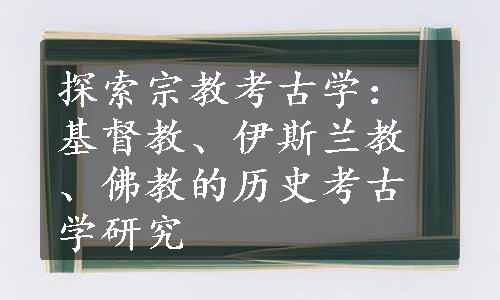 探索宗教考古学：
基督教、伊斯兰教
、佛教的历史考古
学研究